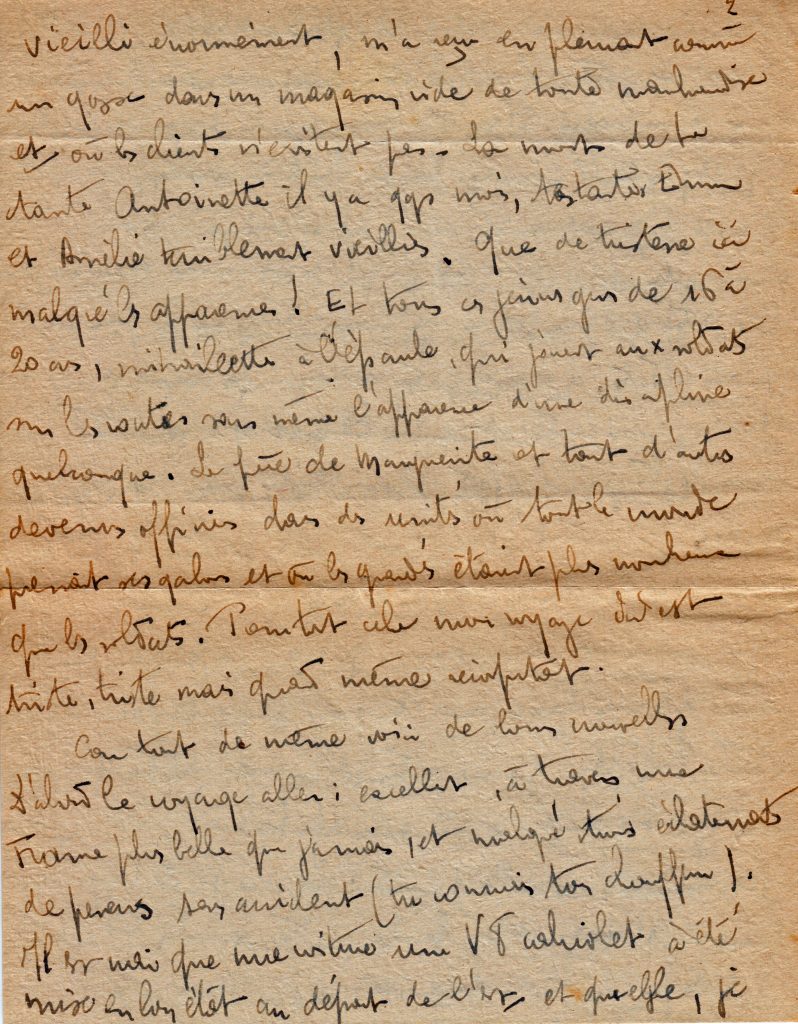 2
vieilli énormément, m'a reçu en pleurant comme
un gosse dans un magasin vide de toute marchandise
et où les clients n'existent pas. La mort de ta
tante Antoinette il y a qqs mois, tes tantes Emma
et Amélie terriblement vieillies. Que de tristesse ici
malgré les apparences! Et tous ces jeunes gens de 16 à
20 ans, mitraillette à l'épaule, qui jouent aux soldats
sur les routes sans même l'apparence d'une discipline
quelconque. Le frère de Marguerite et tant d'autres
devenus officiers dans des unités où tout le monde
prenait ses galons et où les gradés étaient plus nombreux
que les soldats. Pour tout cela mon voyage est
triste, triste mais quand même
Car tout de même voici de bonnes nouvelles
D'abord le voyage aller: excellent, à travers une
France plus belle que jamais, et malgré trois éclatements
de pneus sans accident (tu connais ton chauffeur).
Il est vrai que ma voiture une V8 cabriolet a été
mise en bon état au départ de l'est et que elle, je